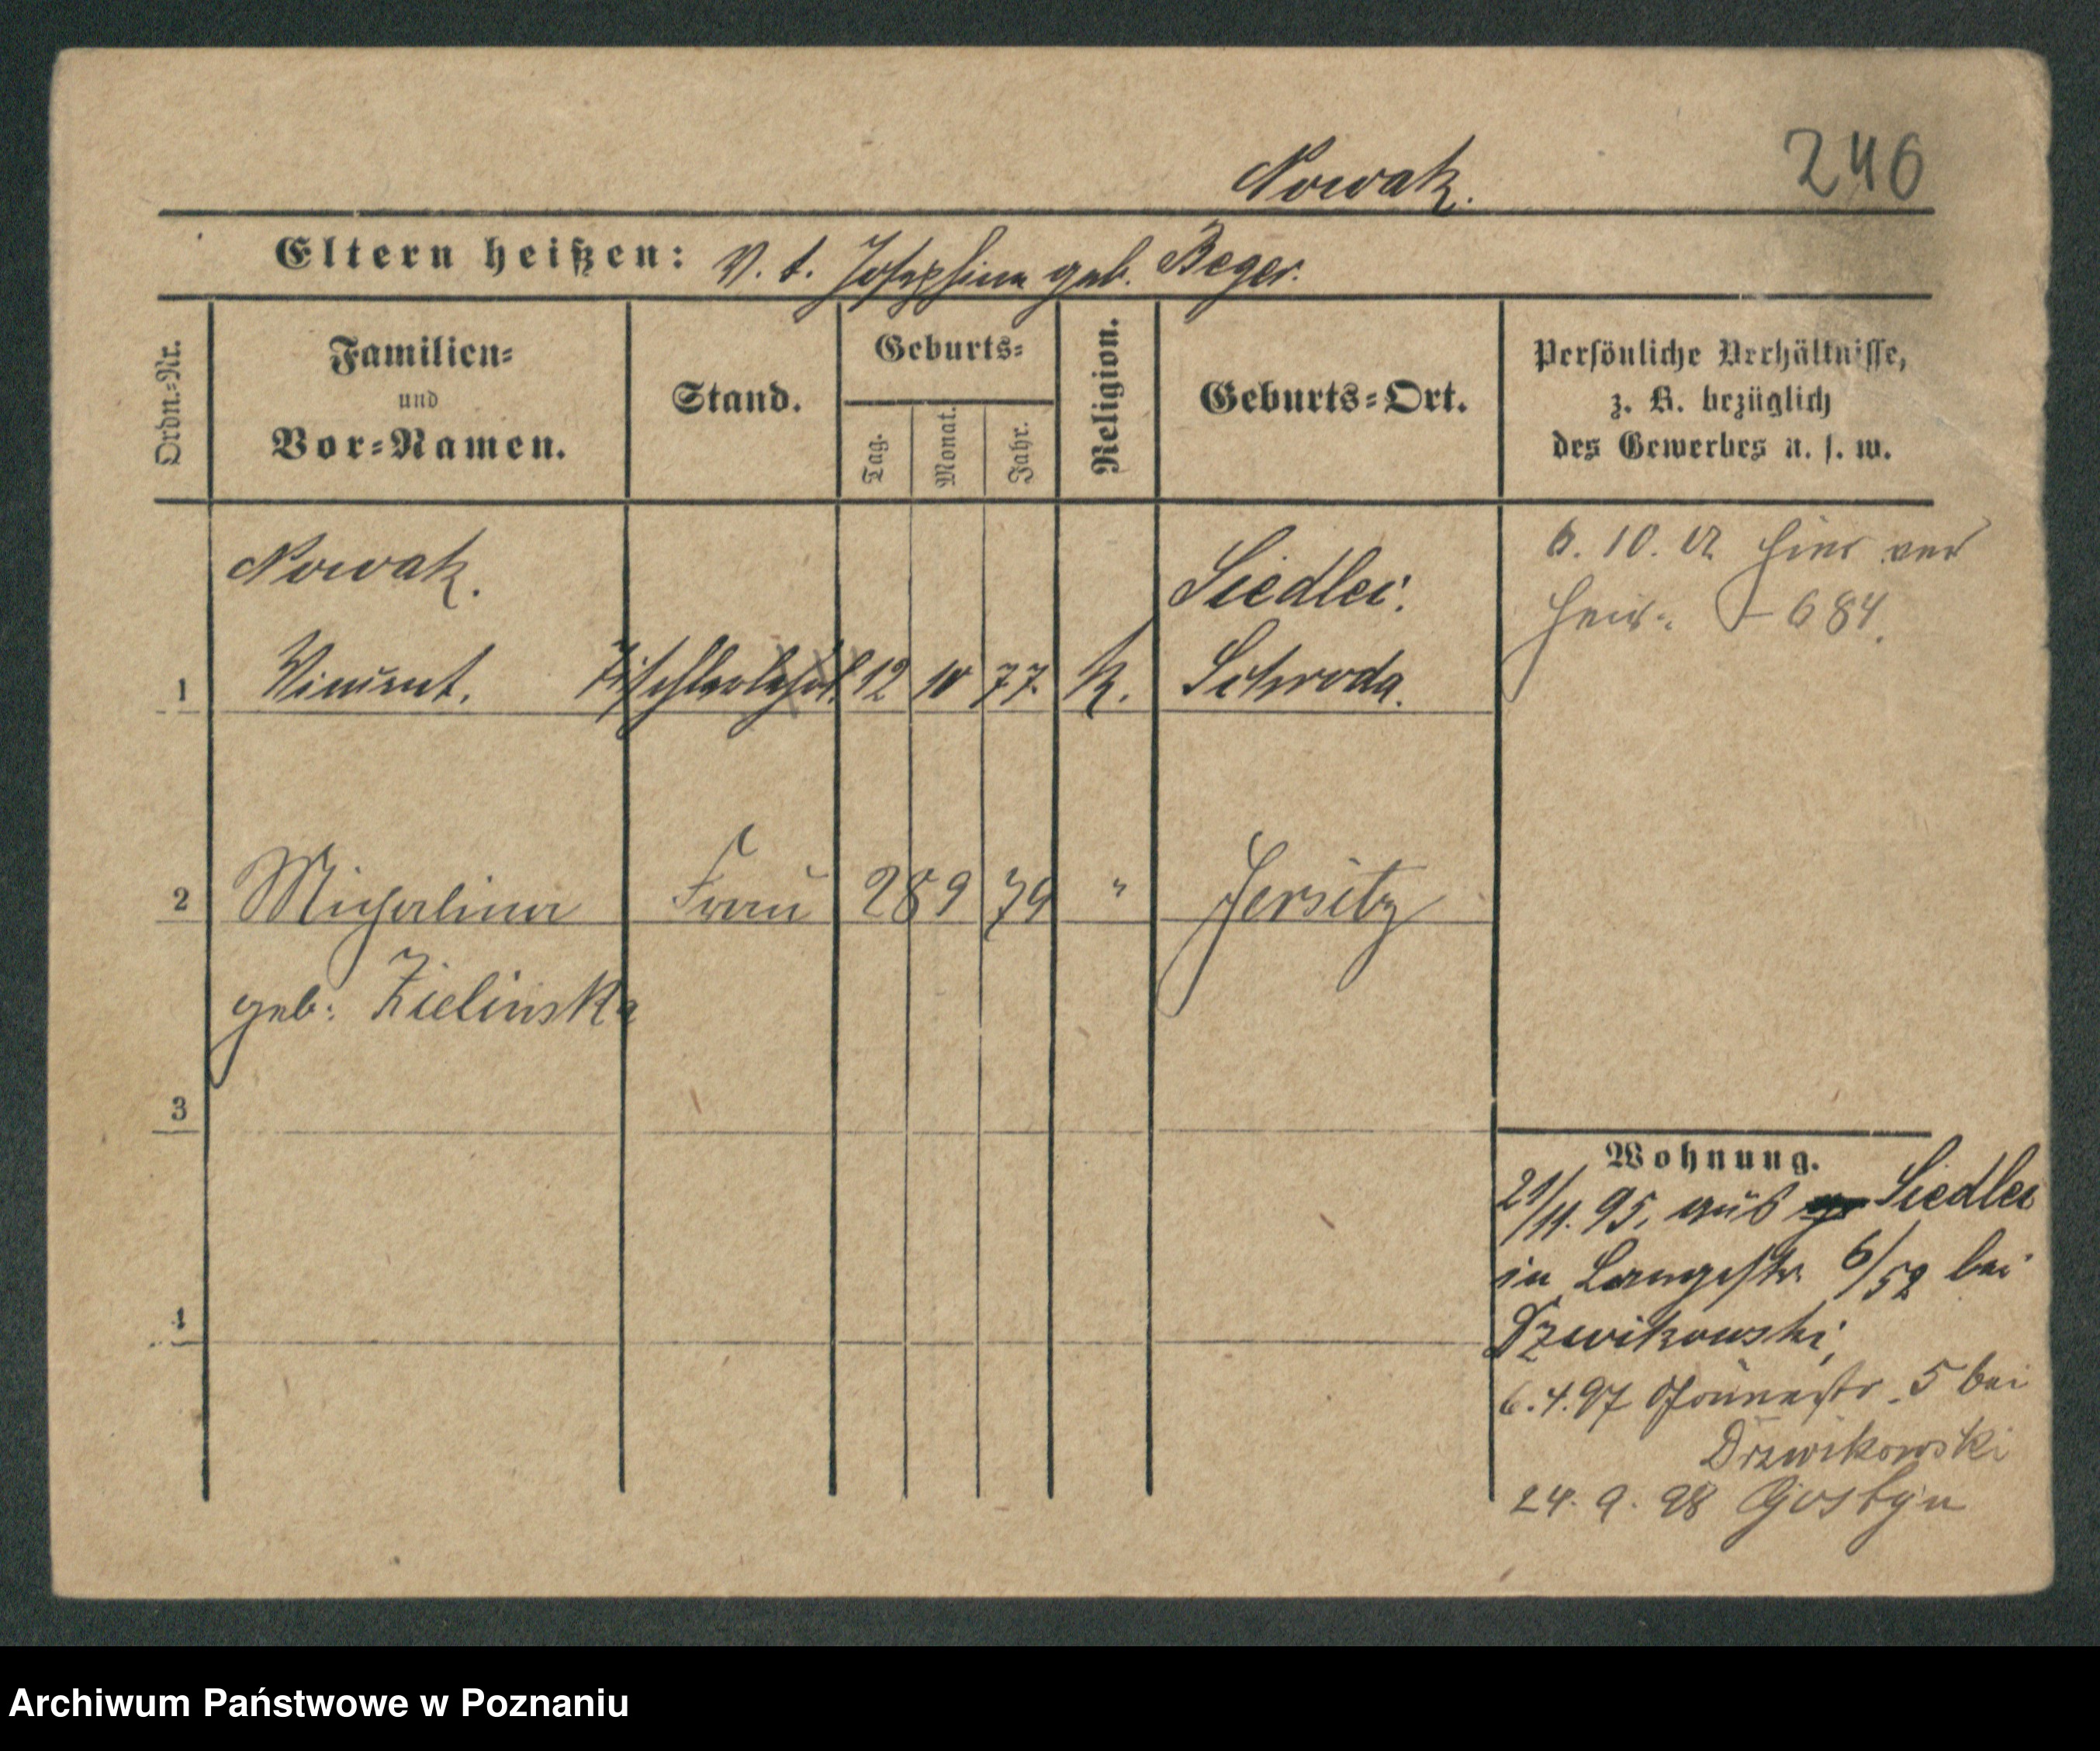 246
Nowak.
Eltern heißen: V. t. Josephine geb. Beger.
Ordn.=Nr.
Familien=
und
Vor=Namen.
Stand.
Geburts=
Tag.
Monat.
Jahr.
Religion.
Geburts=Ort.
Persönliche Verhältnisse,
z. B. bezüglich
des Gewerbes u. s. w.
Nowak.
Siedlei.
1 Vincent. Tischlerlehrl. 12 10 77. K. Schroda.
6. 10. hier ver
heir. 684.
2 Michalina Frau 28 9 79 " Jersitz
geb: Zielinska
3
4
Wohnung.
21/11. 95. aus Siedlei
in Langestr. 6/52 bei
Dzwikowski,
6.4.97 5 bei
Drzwikowski
24. 9. 98 Gostyn
Archiwum Państwowe w Poznaniu